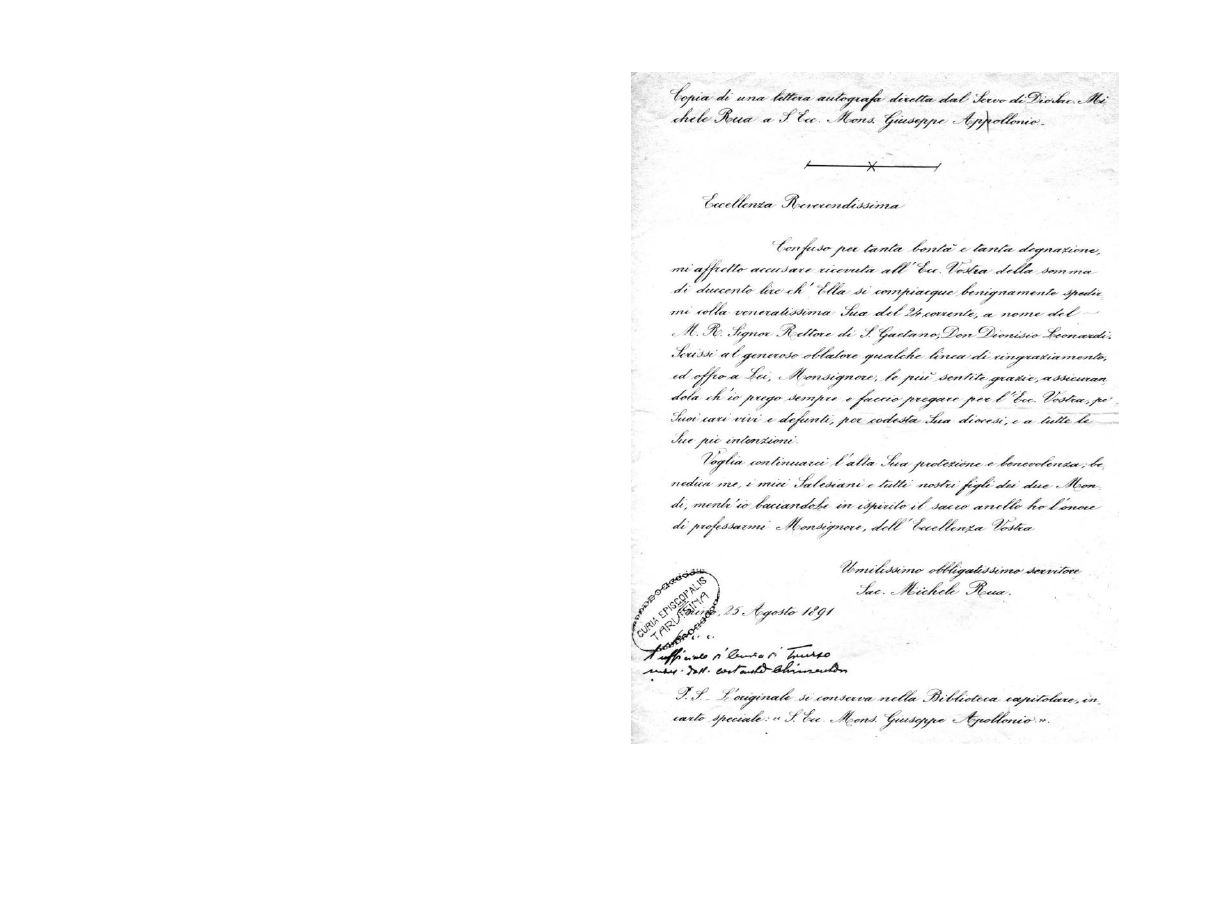 Copia di una lettera autografa diretta dal Servo di Dio Sac. Mi
chele Rua a S. Ecc. Mons. Giuseppe Appollonio.
Eccellenza Reverendissima
Confuso per tanta bontà e tanta degnazione,
mi affretto accusare ricevuta all'Ecc. Vostra della somma
di duecento lire ch'Ella si compiacque benignamente spedir
mi colla veneratissima Sua del 24 corrente, a nome del
M. R. Signor Rettore di S. Gaetano, Don Dionisio Leonardi.
Scrissi al generoso oblatore qualche linea di ringraziamento,
ed offro a Lei, Monsignore, le più sentite grazie, assicuran
dola ch'io prego sempre e faccio pregare per l'Ecc. Vostra, pe'
Suoi cari vivi e defunti, per codesta Sua diocesi, e a tutte le
Sue pie intenzioni.
Voglia continuarci l'alta Sua protezione e benevolenza; be.
nedica me, i miei Salesiani e tutti nostri figli dei due Mon-
di, mentr'io baciandoLe in ispirito il sacro anello ho l'onore
di professarmi Monsignore, dell'Eccellenza Vostra
Umilissimo obbligatissimo servitore
Sac. Michele Rua.
CURIA EPISCOPALIS
TARVISINA
25 Agosto 1891
P. S. L'originale si conserva nella Biblioteca capitolare, in-
carto speciale: « S. Ecc. Mons. Giuseppe Apollonio ».